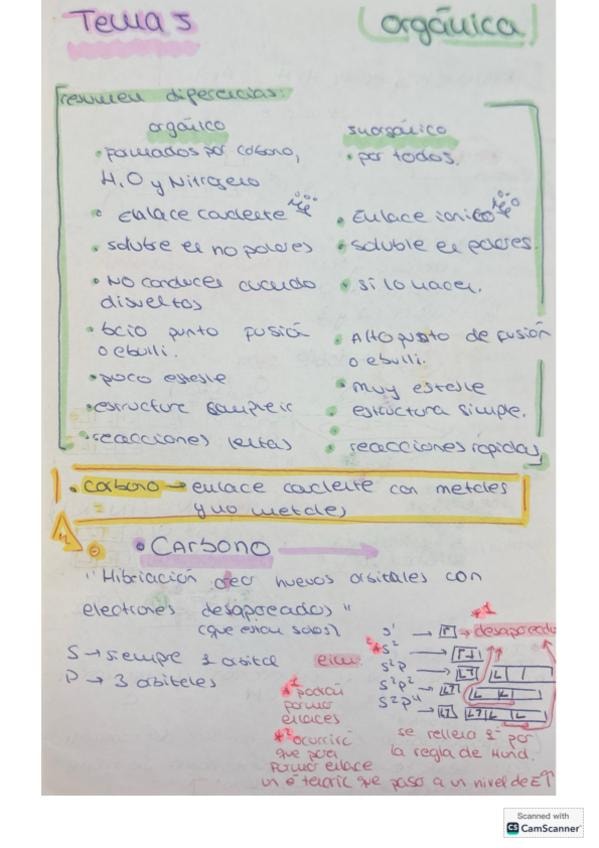 Tema 5
orgánica
resumen diferencias:
orgánico
inorgánico
• formados por carbono, H, O y Nitrógeno
• por todos.
• Enlace covalente
• Enlace iónico
• soluble en no polares
• soluble en polares.
• NO conducen cuando disueltos
• si lo hacen.
• bajo punto fusión o ebulli.
• Alto punto de fusión o ebulli.
• poco estable
• muy estable
• estructura
• estructura simple.
• reacciones lentas
• reacciones rápidas
• carbono → enlace covalente con metales
y no metales
• CARBONO →
"Hibriación crear nuevos orbitales con
electrones desapareados"
(que están solos)
S → siempre 1 orbital
P → 3 orbitales
s¹ → desapareado
*1
*2 s²
s²p →
s²p² →
s²p⁴ →
*1 podrán
formar
enlaces
*2 ocurrirá
que para
formar enlace
un e⁻ que paso a un nivel de E↑
se rellena 1º por
la regla de Hund.
Scanned with
CS CamScanner